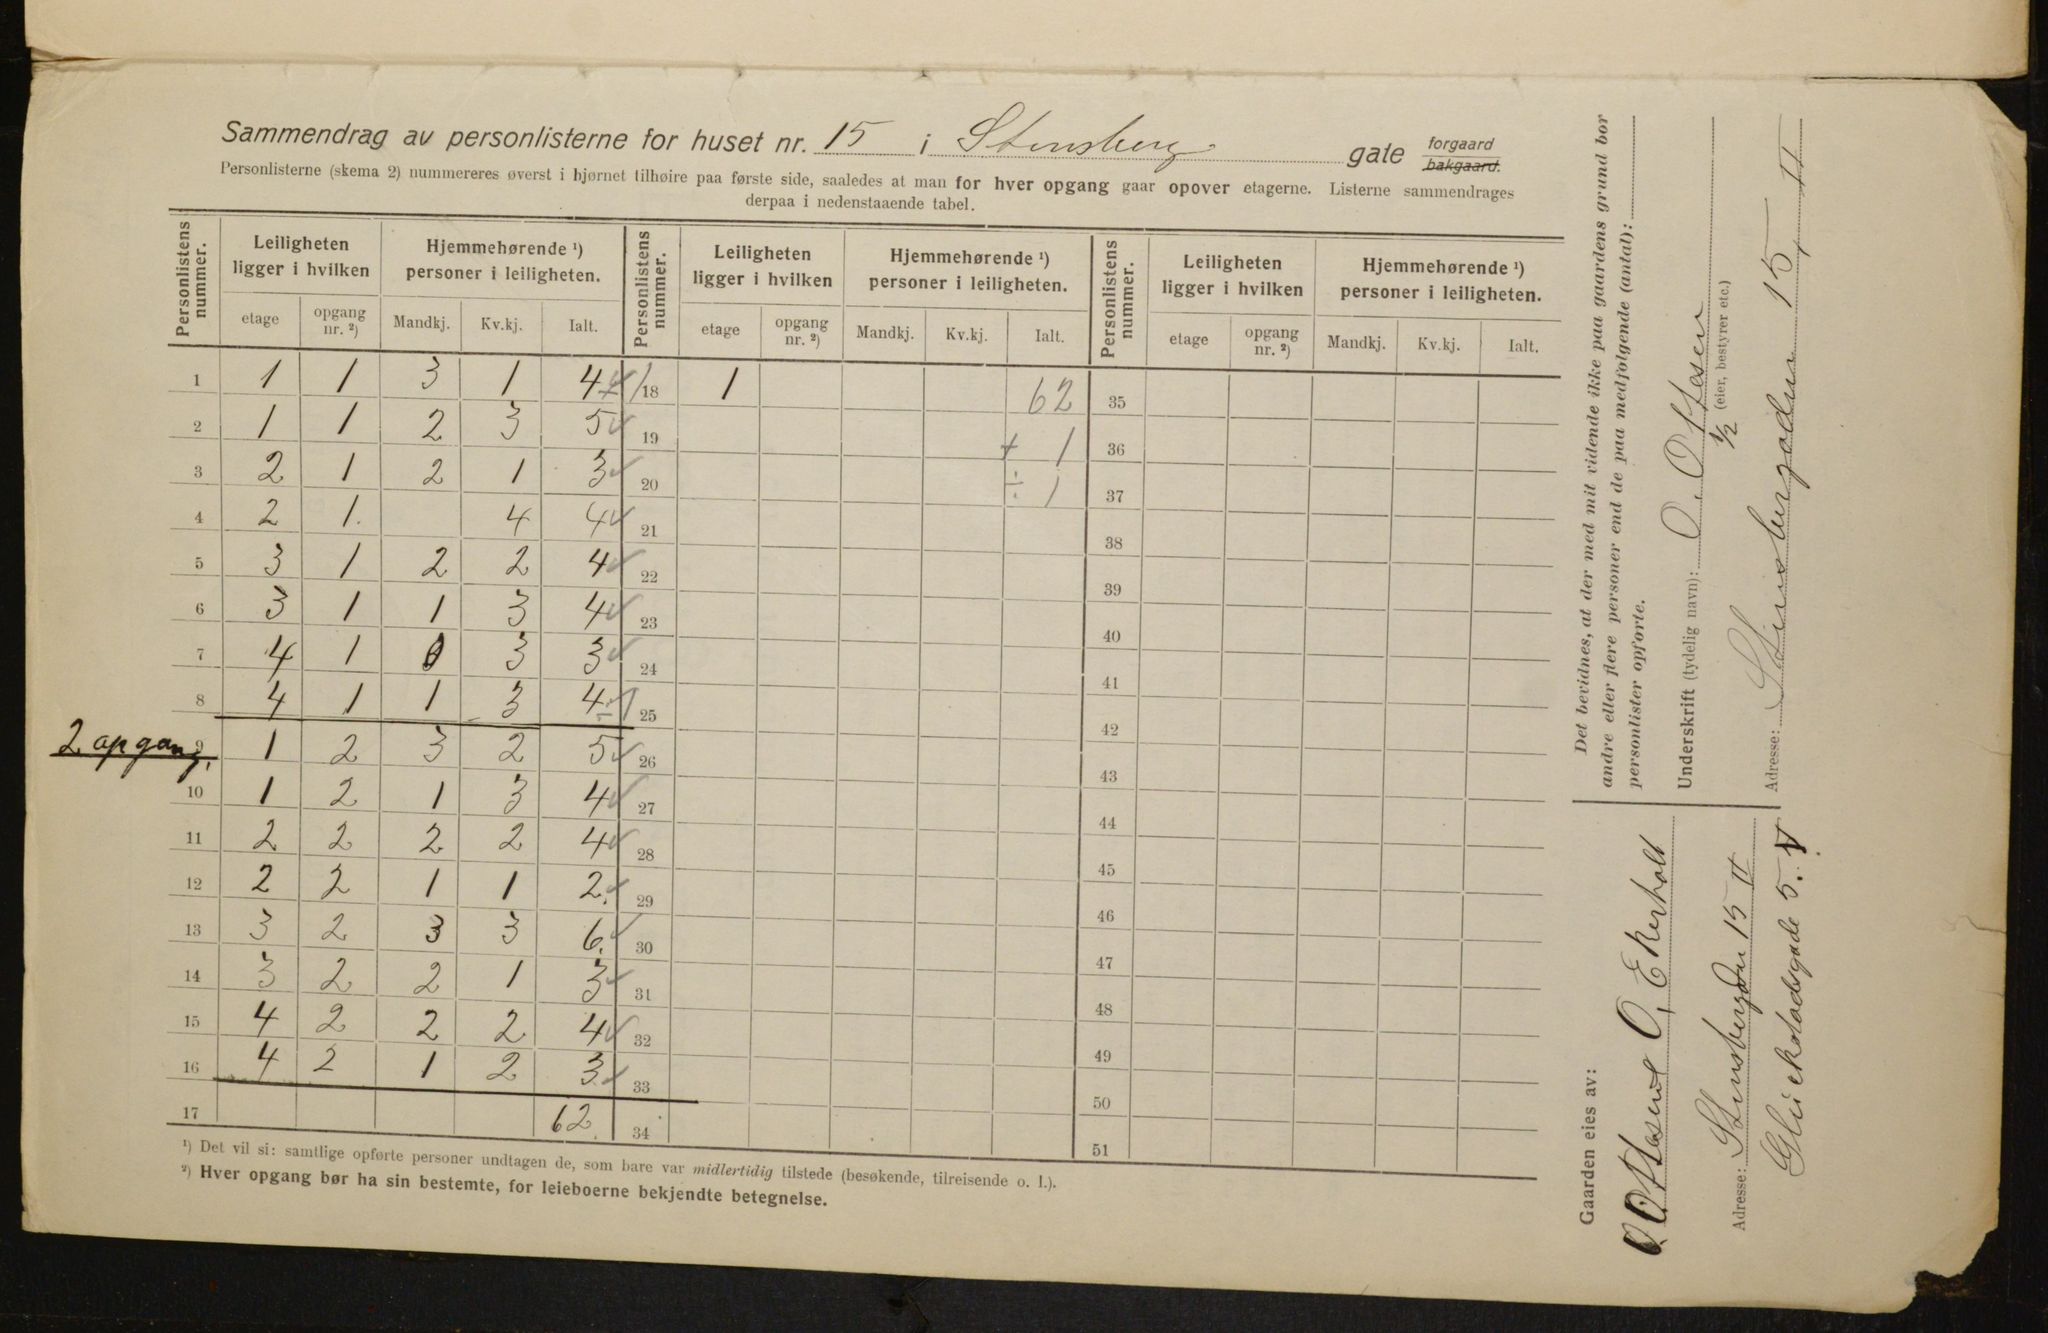 Sammendrag av personlisterne for huset nr. 15 i Stensberg gate forgaard bakgaard.
Personlisterne (skema 2) nummereres øverst i hjørnet tilhøire paa første side, saaledes at man for hver opgang gaar opover etagerne. Listerne sammendrages
derpaa i nedenstaaende tabel.
Personlistens nummer. Leiligheten ligger i hvilken Hjemmehørende ¹) personer i leiligheten. Personlistens nummer. Leiligheten ligger i hvilken Hjemmehørende ¹) personer i leiligheten. Personlistens nummer. Leiligheten ligger i hvilken Hjemmehørende ¹) personer i leiligheten.
etage opgang nr. ²) Mandkj. Kv.kj. Ialt. etage opgang nr. ²) Mandkj. Kv.kj. Ialt. etage opgang nr. ²) Mandkj. Kv.kj. Ialt.
1 1 1 3 1 4 + 1 18 1 62 35
2 1 1 2 3 5 19 + 1 36
3 2 1 2 1 3 20 ÷ 1 37
4 2 1. 4 4 21 38
5 3 1 2 2 4 22 39
6 3 1 1 3 4 23 40
7 4 1 0 3 3 24 41
8 4 1 1 3 4 ÷ 1 25 42
2 opgang. 9 1 2 3 2 5 26 43
10 1 2 1 3 4 27 44
11 2 2 2 2 4 28 45
12 2 2 1 1 2. 29 46
13 3 2 3 3 6. 30 47
14 3 2 2 1 3 31 48
15 4 2 2 2 4 32 49
16 4 2 1 2 3 33 50
17 62. 34 51
¹) Det vil si: samtlige opførte personer undtagen de, som bare var midlertidig tilstede (besøkende, tilreisende o. l.).
²) Hver opgang bør ha sin bestemte, for leieboerne bekjendte betegnelse.
Det bevidnes, at der med mit vidende ikke paa gaardens grund bor
andre eller flere personer end de paa medfolgende (antal):
personlister opforte.
Underskrift (tydelig navn): O. Ottesen
½ (eier, bestyrer etc.)
Adresse: Stensberggaden 15, II
Gaarden eies av:
O. Ottesen & O. Ekerholt
Adresse: Stensberggaden 15 II
Glückstadsgade 5. V.